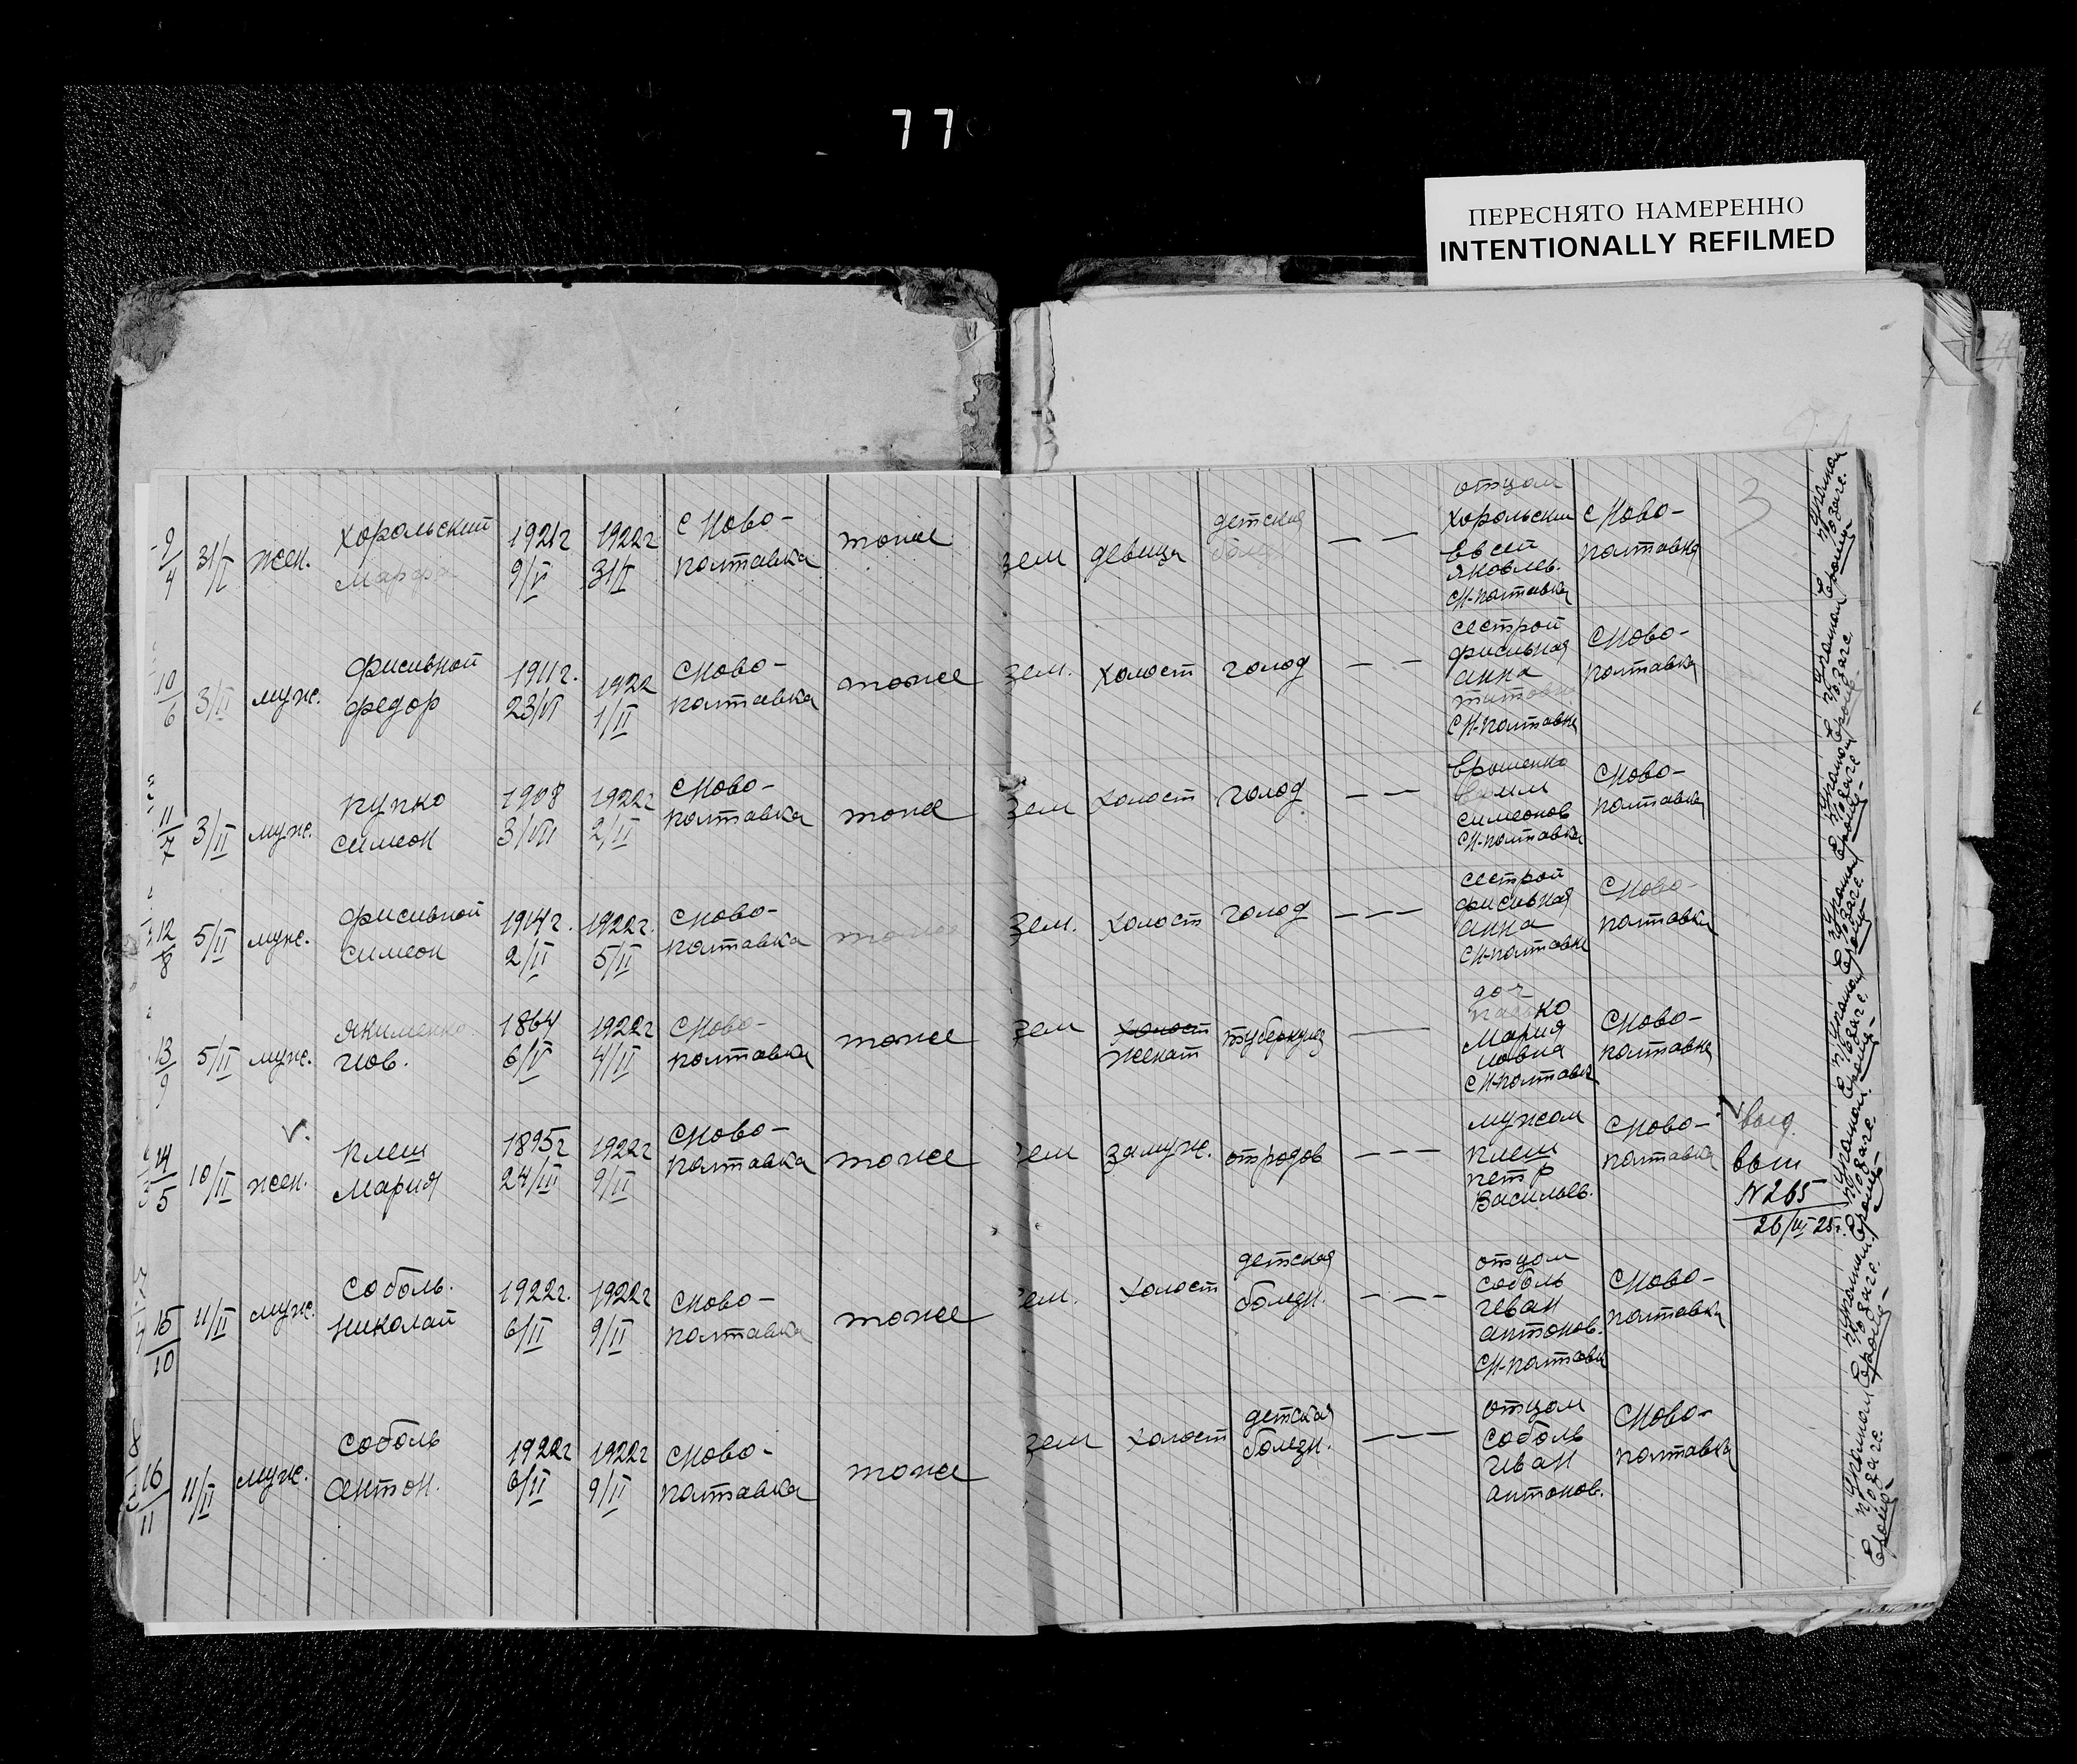 77
ПЕРЕСНЯТО НАМЕРЕННО
INTENTIONALLY REFILMED
3
9/4 31/I жен. Хорольский Марфа 1921г 9/VI 1922г 31/I с Ново-полтавка тоже зем девица детская болезн — — отцом Хорольским Евсей Яковлев. с Н-полтавка с Ново-полтавка
10/6 3/II муж. Фисивной Федор 1911г. 23/VI 1922 1/II с Ново-полтавка тоже зем. холост голод — — сестрой Фисивная Анна Титовна с Н-полтавка с Ново-полтавка
11/7 3/II муж. Пупко Симеон 1908 3/VII 1922г 2/II с Ново-полтавка тоже зем холост голод — — Ерошенко Симеонов с Н-полтавка с Ново-полтавка
12/8 5/II муж. Фисивной Симеон 1914г. 2/II 1922г. 5/II с Ново-полтавка тоже зем. холост голод — — — сестрой Фисивная Анна с Н-полтавка с Ново-полтавка
13/9 5/II муж. Якименко Иов. 1864 6/V 1922г 4/II с Ново-полтавка тоже зем холост женат туберкулез — доч Мария Иовна с Н-полтавка с Ново-полтавка
14/5 10/II жен. Плеш Мария 1895г 24/III 1922г 9/II с Ново-полтавка тоже зем замуж. отродов — — — мужем Плеш Петр Васильев. с Ново-полтавка выд. вып N 265 26/III-25г.
15/10 11/II муж. Соболь. Николай 1922г. 6/II 1922г 9/II с Ново-полтавка тоже зем. холост детская болезн. — — — отцом Соболь Иван Антонов. с Н-полтавка с Ново-полтавка
16/11 11/II муж. Соболь Антон. 1922г 6/II 1922г 9/II с Ново-полтавка тоже зем холост детская болезн. — — — отцом Соболь Иван Антонов. с Ново-полтавка